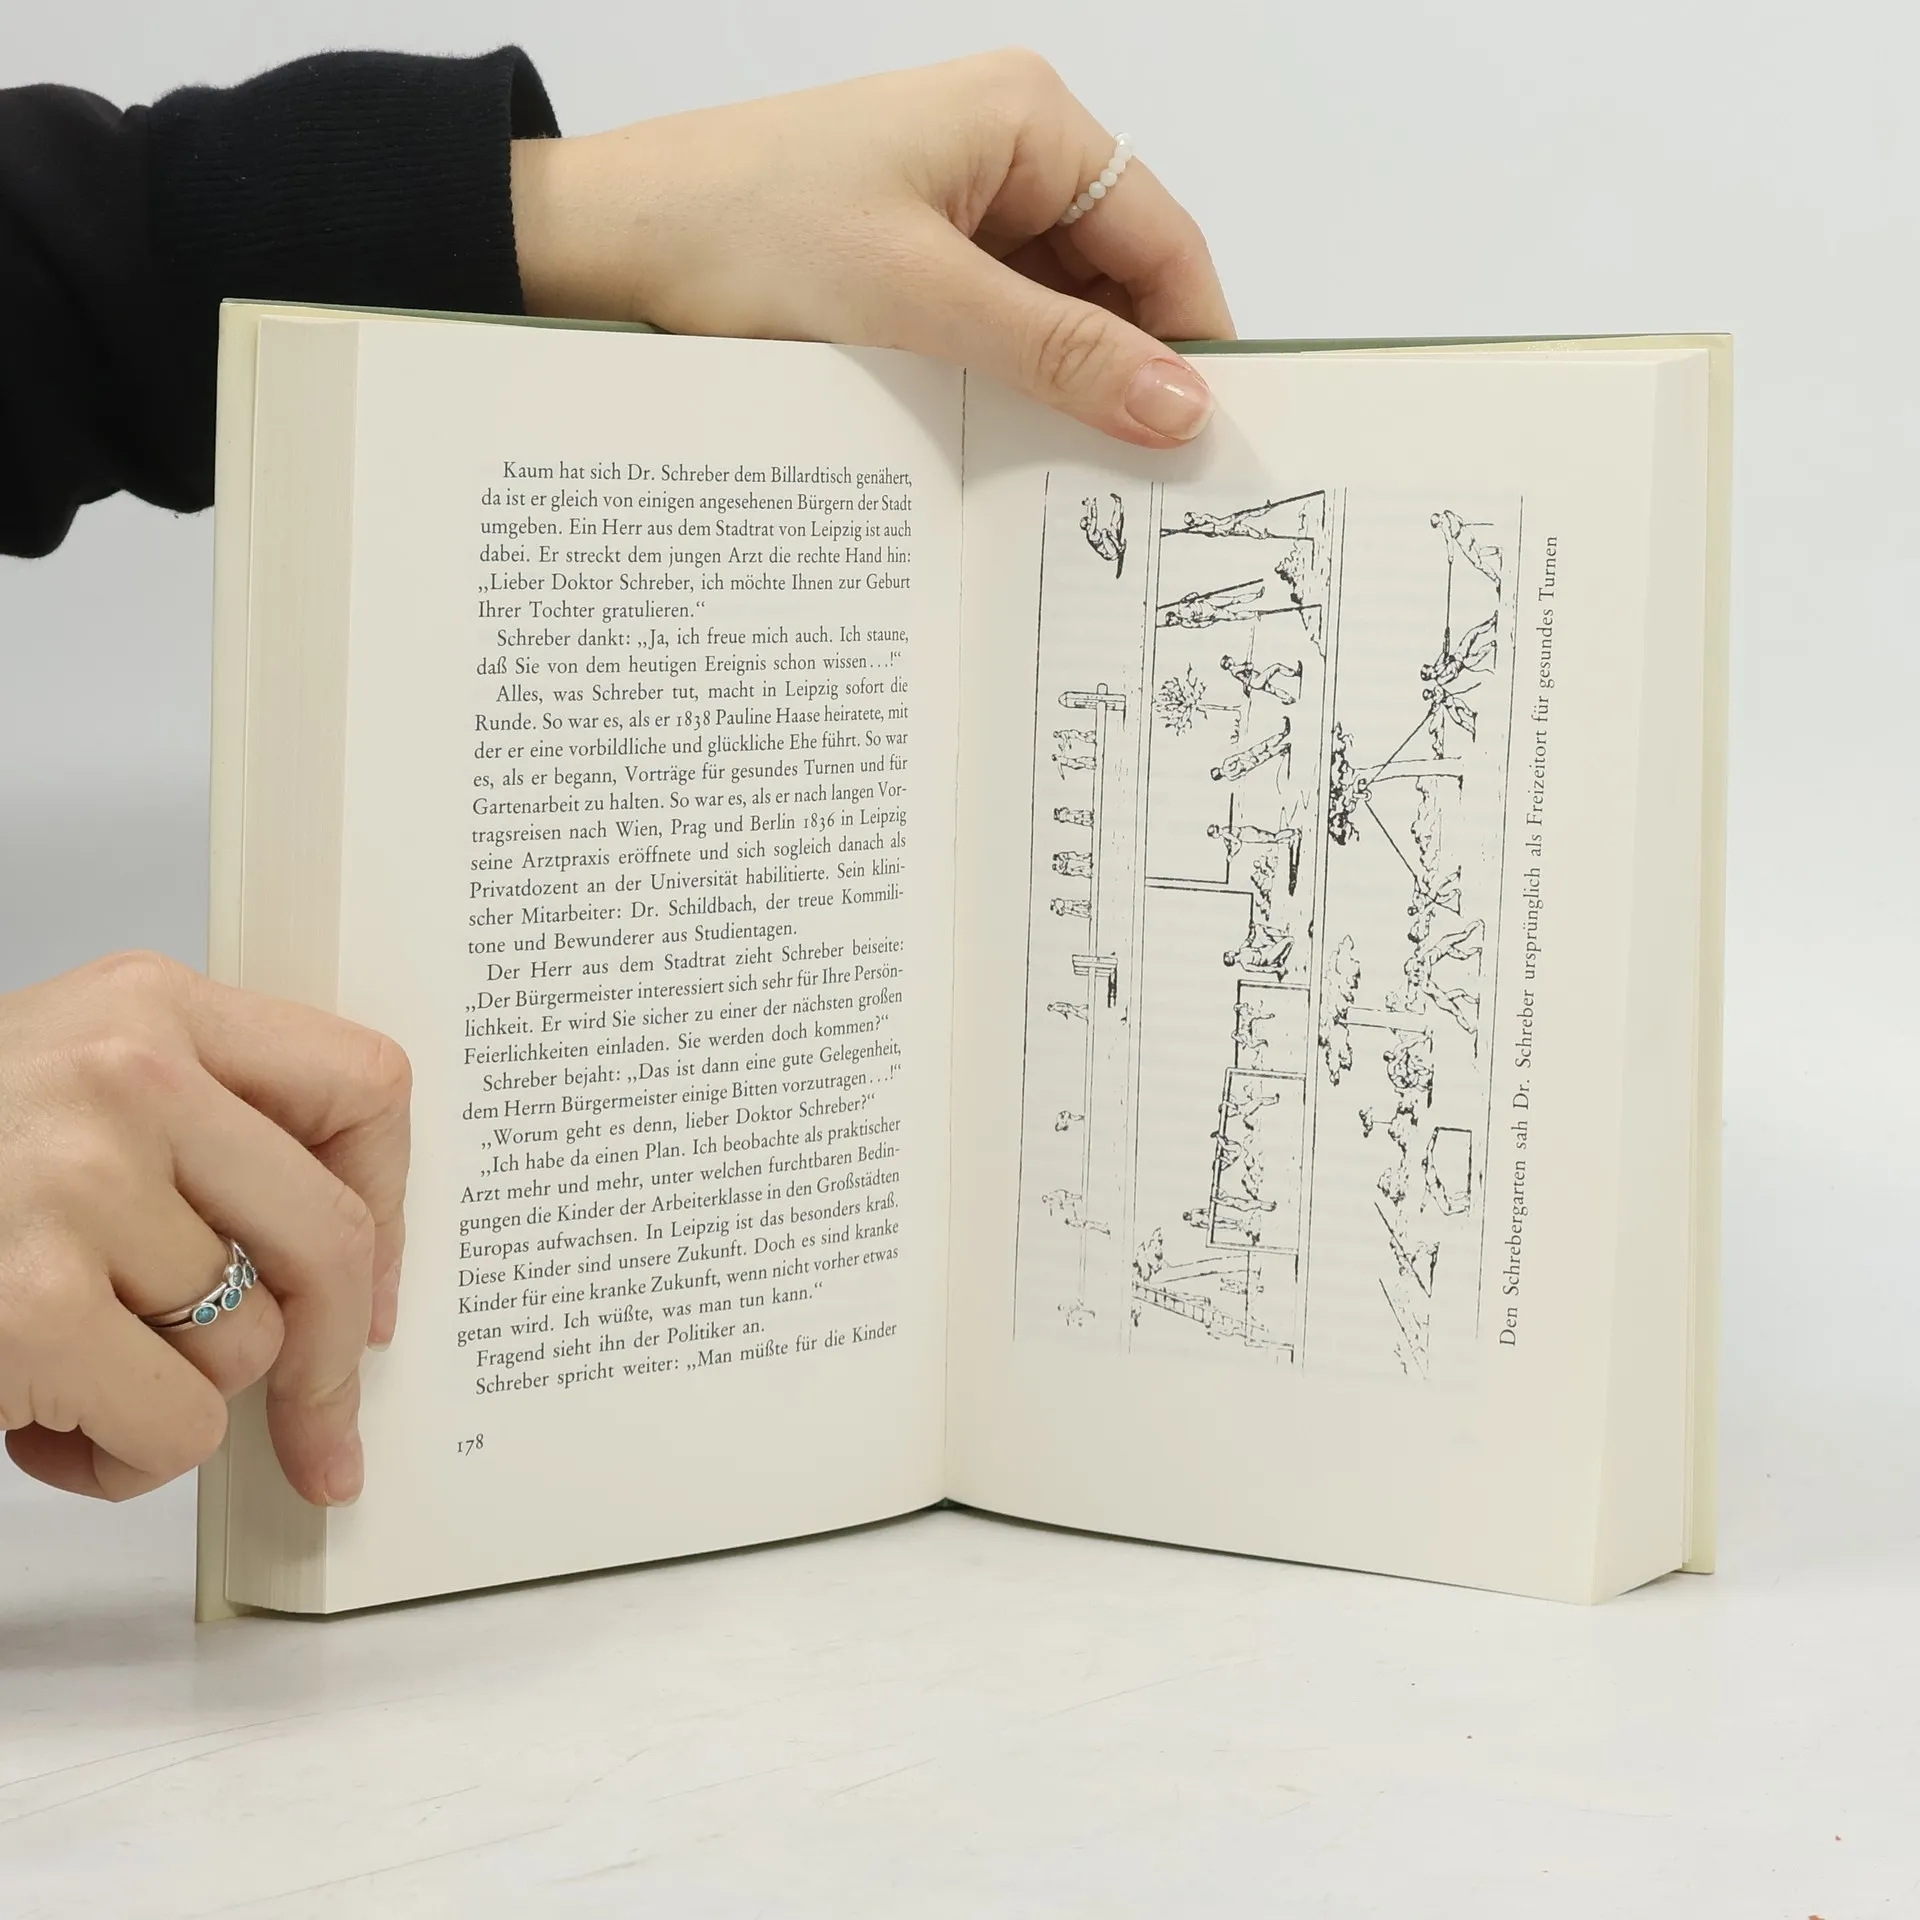 Kaum hat sich Dr. Schreber dem Billardtisch genähert,
da ist er gleich von einigen angesehenen Bürgern der Stadt
umgeben. Ein Herr aus dem Stadtrat von Leipzig ist auch
dabei. Er streckt dem jungen Arzt die rechte Hand hin:
„Lieber Doktor Schreber, ich möchte Ihnen zur Geburt
Ihrer Tochter gratulieren.“
Schreber dankt: „Ja, ich freue mich auch. Ich staune,
daß Sie von dem heutigen Ereignis schon wissen...!“
Alles, was Schreber tut, macht in Leipzig sofort die
Runde. So war es, als er 1838 Pauline Haase heiratete, mit
der er eine vorbildliche und glückliche Ehe führt. So war
es, als er begann, Vorträge für gesundes Turnen und für
Gartenarbeit zu halten. So war es, als er nach langen Vor-
tragsreisen nach Wien, Prag und Berlin 1836 in Leipzig
seine Arztpraxis eröffnete und sich sogleich danach als
Privatdozent an der Universität habilitierte. Sein klini-
scher Mitarbeiter: Dr. Schildbach, der treue Kommili-
tone und Bewunderer aus Studientagen.
Der Herr aus dem Stadtrat zieht Schreber beiseite:
„Der Bürgermeister interessiert sich sehr für Ihre Persön-
lichkeit. Er wird Sie sicher zu einer der nächsten großen
Feierlichkeiten einladen. Sie werden doch kommen?“
Schreber bejaht: „Das ist dann eine gute Gelegenheit,
dem Herrn Bürgermeister einige Bitten vorzutragen...!“
„Worum geht es denn, lieber Doktor Schreber?“
„Ich habe da einen Plan. Ich beobachte als praktischer
Arzt mehr und mehr, unter welchen furchtbaren Bedin-
gungen die Kinder der Arbeiterklasse in den Großstädten
Europas aufwachsen. In Leipzig ist das besonders kraß.
Diese Kinder sind unsere Zukunft. Doch es sind kranke
Kinder für eine kranke Zukunft, wenn nicht vorher etwas
getan wird. Ich wüßte, was man tun kann.“
Fragend sieht ihn der Politiker an.
Schreber spricht weiter: „Man müßte für die Kinder
178
Den Schrebergarten sah Dr. Schreber ursprünglich als Freizeitort für gesundes Turnen